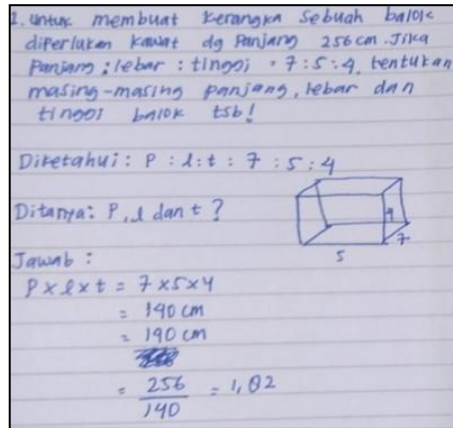 1. untuk membuat kerangka sebuah balok
diperlukan kawat dg panjang 256 cm. Jika
Panjang : lebar : tinggi = 7 : 5 : 4, tentukan
masing-masing panjang, lebar dan
tinggi balok tsb!
Diketahui : P : l : t = 7 : 5 : 4
Ditanya : P, l dan t ?
4
7
5
Jawab :
P x l x t = 7 x 5 x 4
= 140 cm
= 140 cm
= 256/140 = 1,82